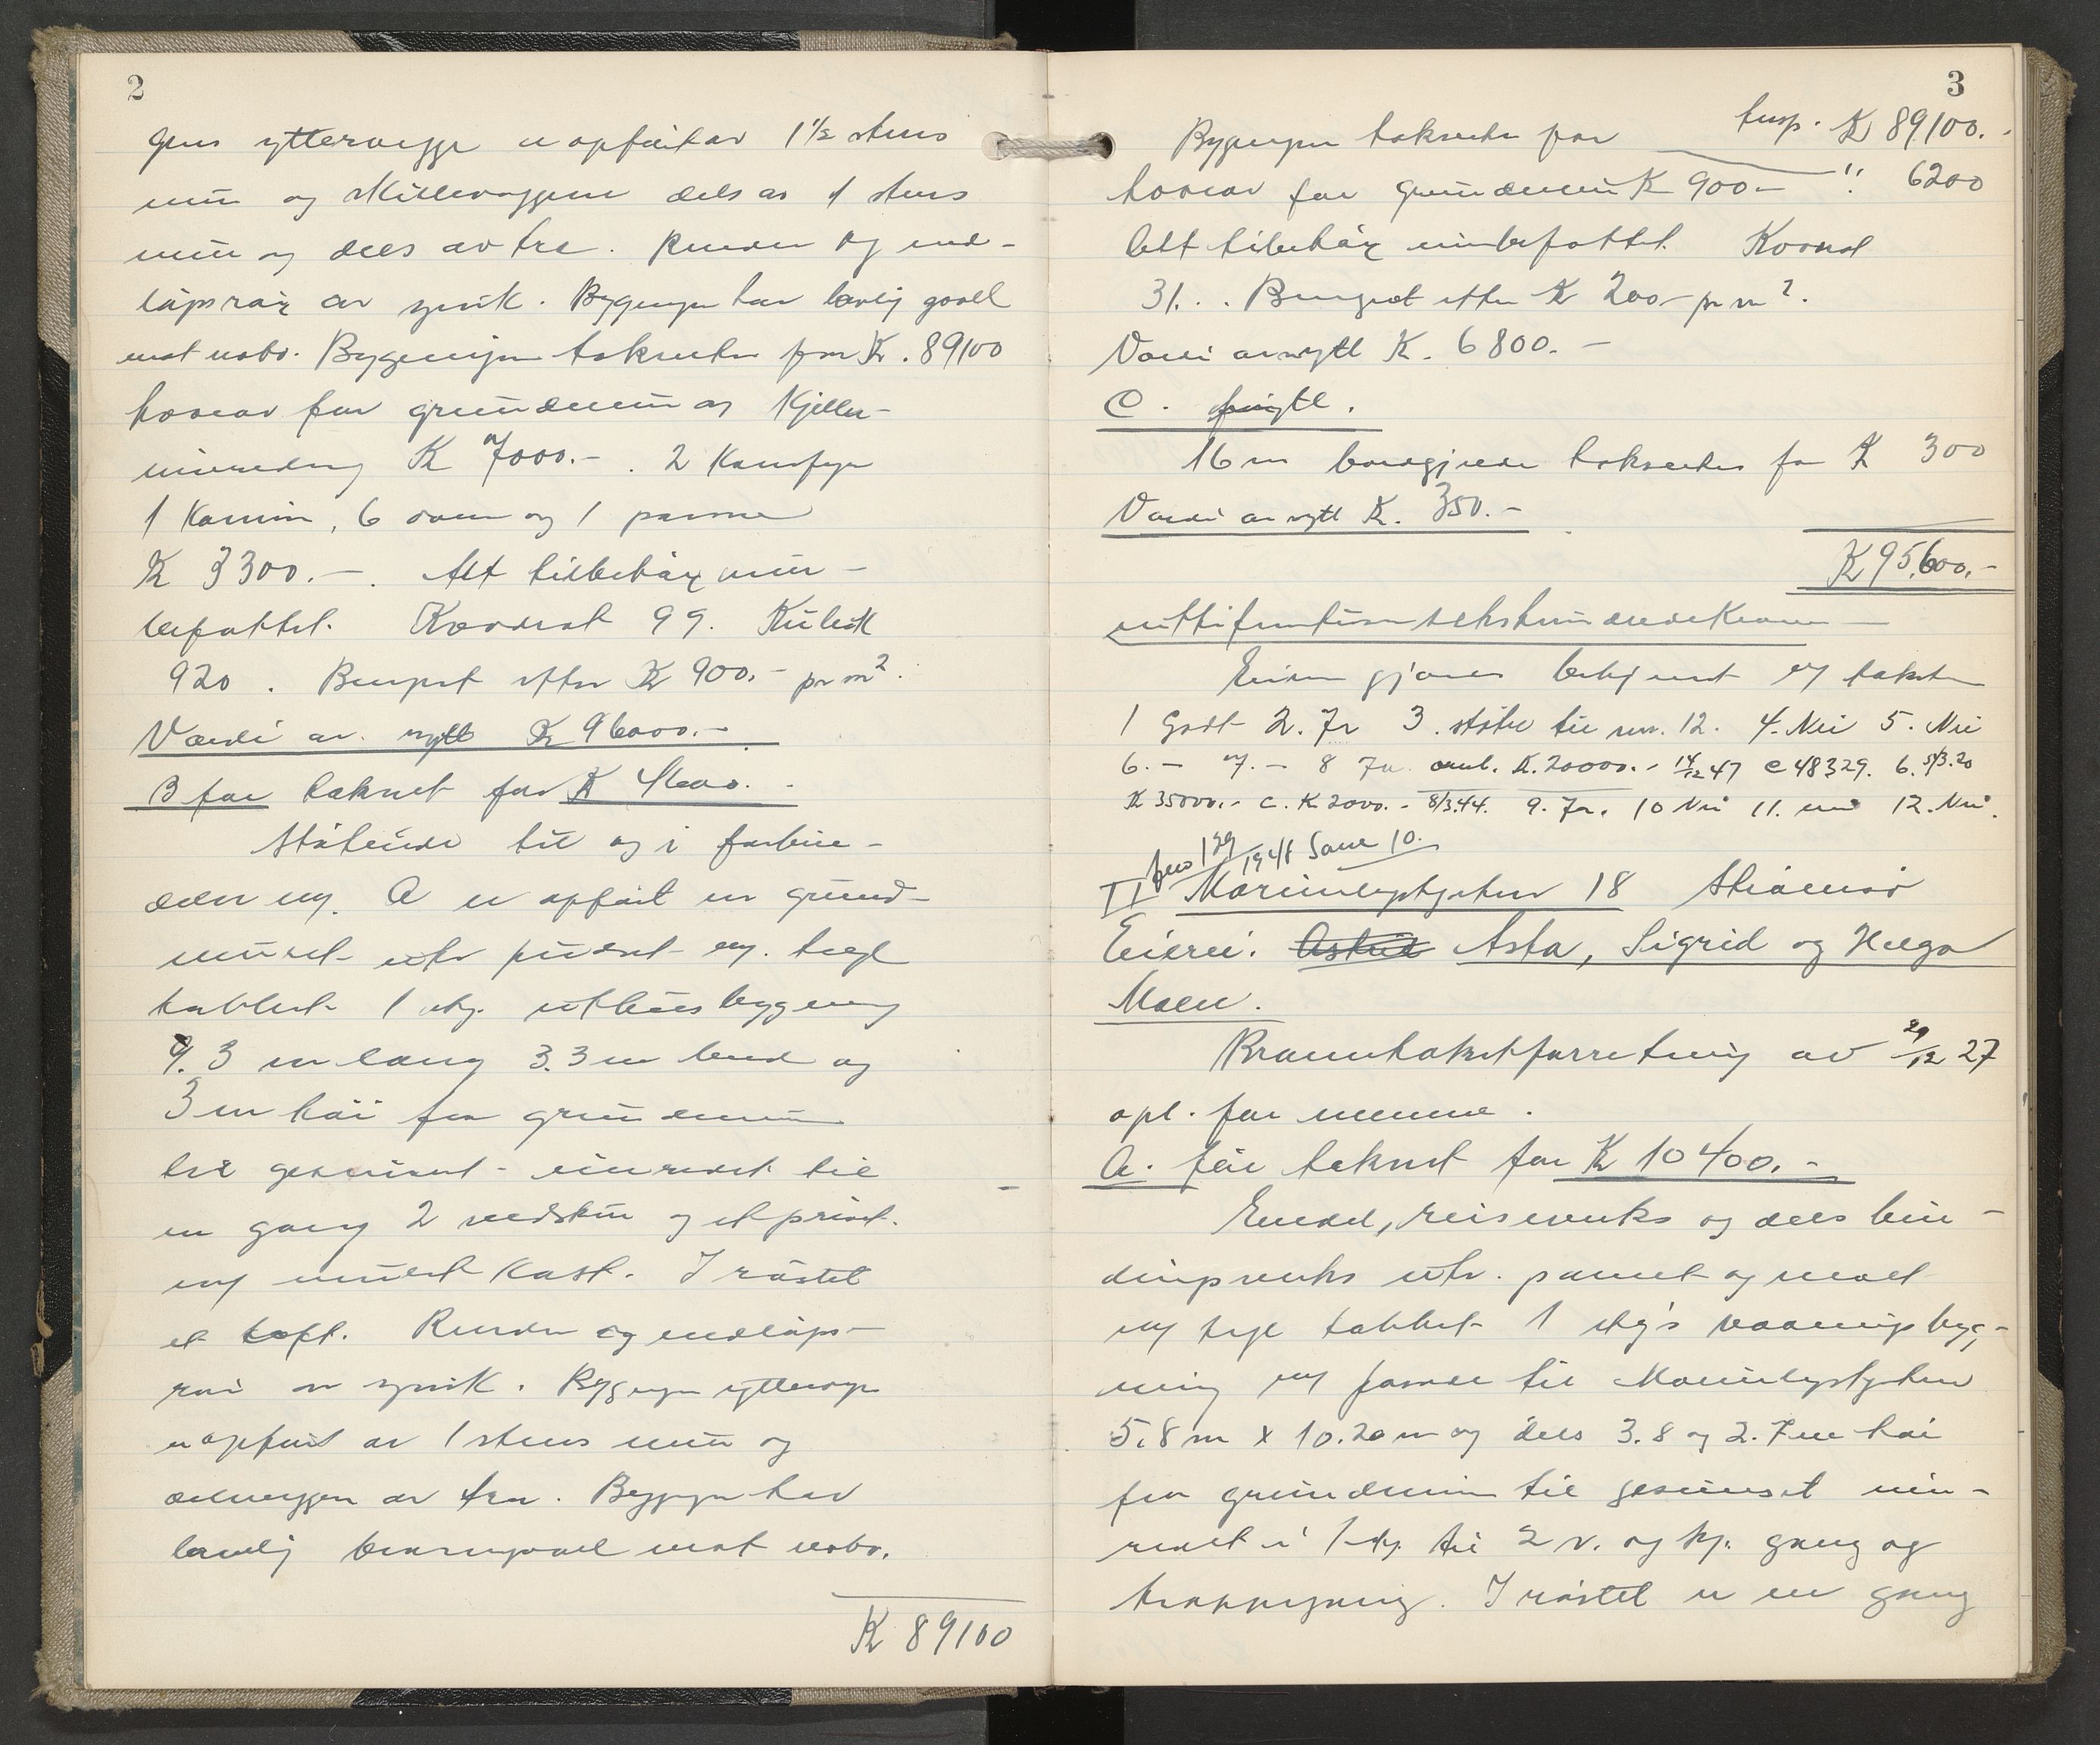 2
gens yttervegge er opført av 1½ stens
mur og skillevæggene dels av 1 stens
mur og dels av træ. Render og ned-
løpsrør av zink. Bygningen har lovlig gavl
mot nabo. Bygningen takseres for K. 89100
hvorav for grundmur og kjeller-
inredning K 7000.- . 2 komfyr
1 Kamin, 6 ovner og 1 panne
K 3300.- . Alt tilbehør inn-
befattet. Kvadrat 99. Kubik
920. Beregnet efter K 900.- pr m².
Værdi av nytt K 96000.-
B før takseret for K 4600.-
Støtende til og i forbin-
delse m. A er opført en grund-
muret utv pudset m. tegl
tækket 1 etg. uthusbygning
9.3 m lang 3.3 m bred og
3 m høi fra grundmur
til gesimset - innredet til
en gang 2 vedskur og et privet.
m muret Kast. I røstet
et loft. Render og nedløps-
rør av zink. Bygningens yttervegge
er opført av 1 stens mur og
delveggen av træ. Bygningen har
lovlig brandgavl mot nabo.
K 89100
3
Bygningen takseres for
trsp. K 89100.-
hvorav for grundmur K 900.- " 6200
Alt tilbehør innbefattet. Kvadrat
31. . Beregnet efter K 200.- pr m².
Værdi av nytt K. 6800.-
C. nytt.
16 m bordgjerde takseres for K 300
Værdi av nytt K. 350.-
K 95,600.-
nittifemtusensekshundredekroner
Eieren gjøres bekjent m taksten
1 Godt 2. Ja 3. støter til nr. 12. 4. Nei 5. Nei
6. - 7. - 8 Ja. K. 20000.- 14/12 47 C 48329. 6. 5/3.20
K 35000.- C. K 2000.- 8/3.44. 9. Ja. 10 Nei 11. 12. Nei.
1941 Sam 10.
II Marienlystgaten 18 Strømsø
Eiere: Astrid Asta, Sigrid og Helga
Moen.
Branntakstforretning av 29/12 27
opl. for
A. før taksert for K 10400.-
Enedel, reisverks og dels bin-
dingsverks utv. panelt og malt
m tegl tækket 1 etg's vaaningsbyg-
ning m fasade til Marienlystgaten
5.8 m x 10.20 m og dels 3.8 og 2.7 m høi
fra grundmur til gesimset inn-
redet i 1 etg. til 2 v. og kj. gang og
trappegang. I røstet er en gang